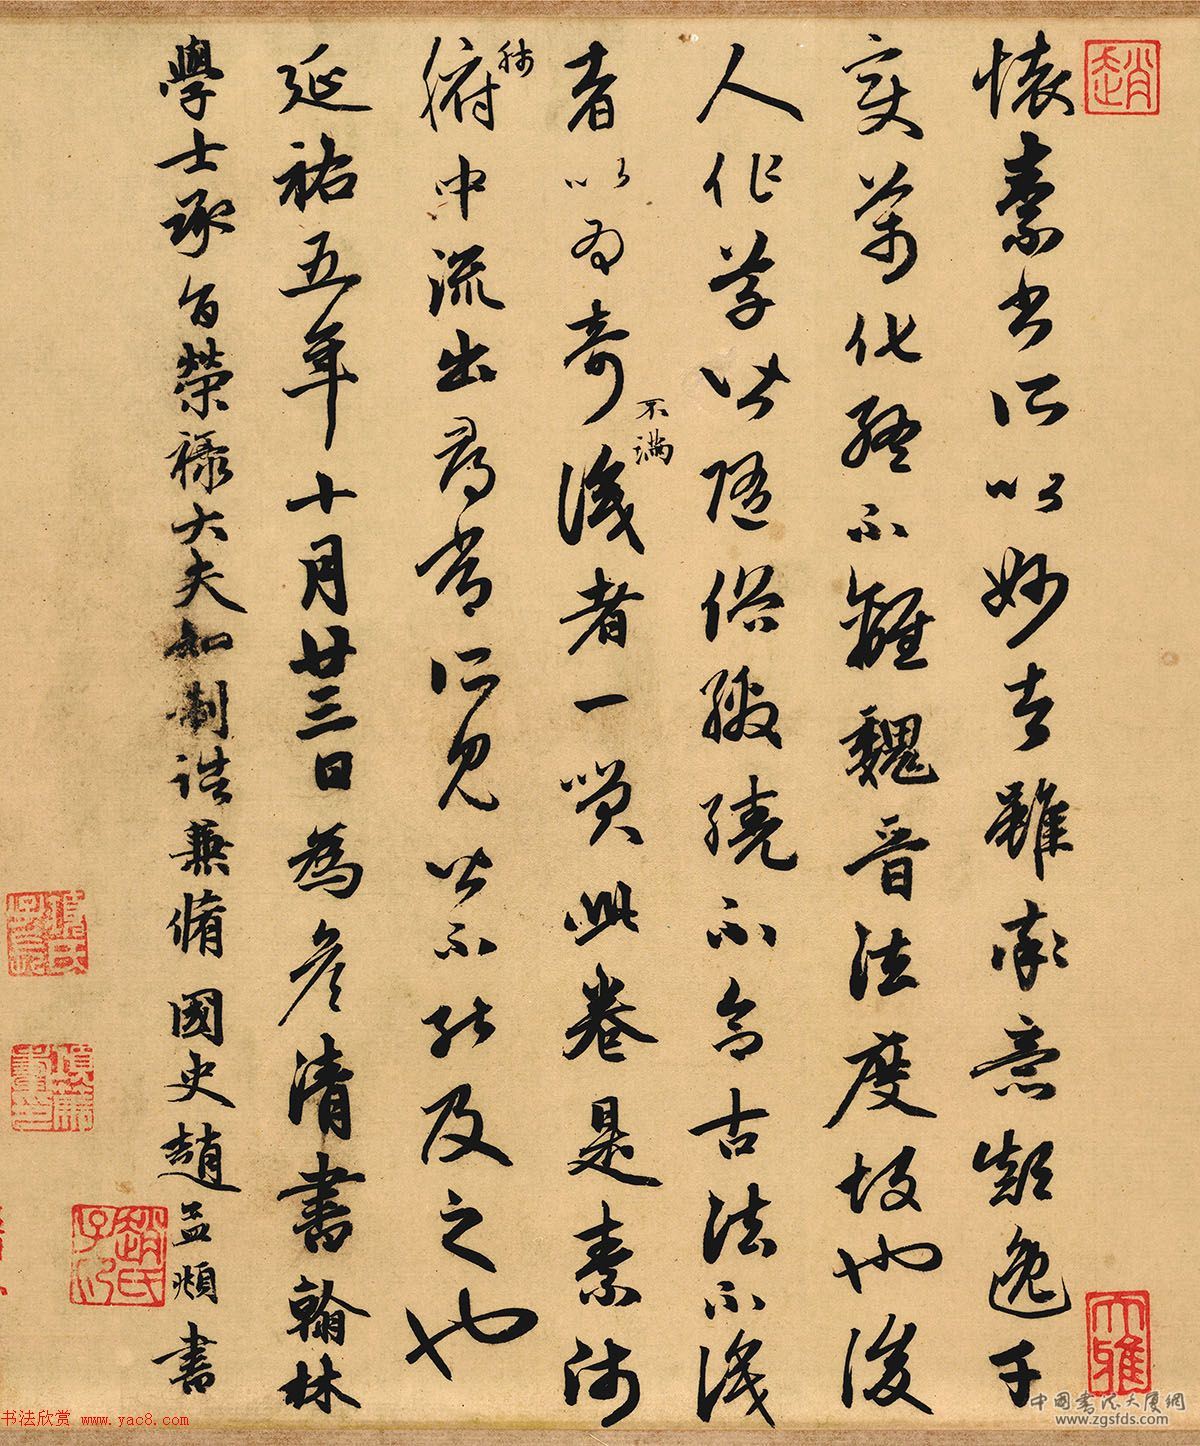 懷素書所以妙者雖率意顛逸千
變萬化終不離魏晉法度故也後
人作草皆隨俗繳繞不合古法不識
者以為奇識者一笑此卷是素師
不滿
肺
腑中流出尋常所見皆不能及之也
延祐五年十月廿三日為彥清書翰林
學士承旨榮祿大夫知制誥兼脩國史趙孟頫書
趙
大雅
趙氏子昂
中國書法大廈網
www.zgsfds.com
书法欣赏 www.yac8.com